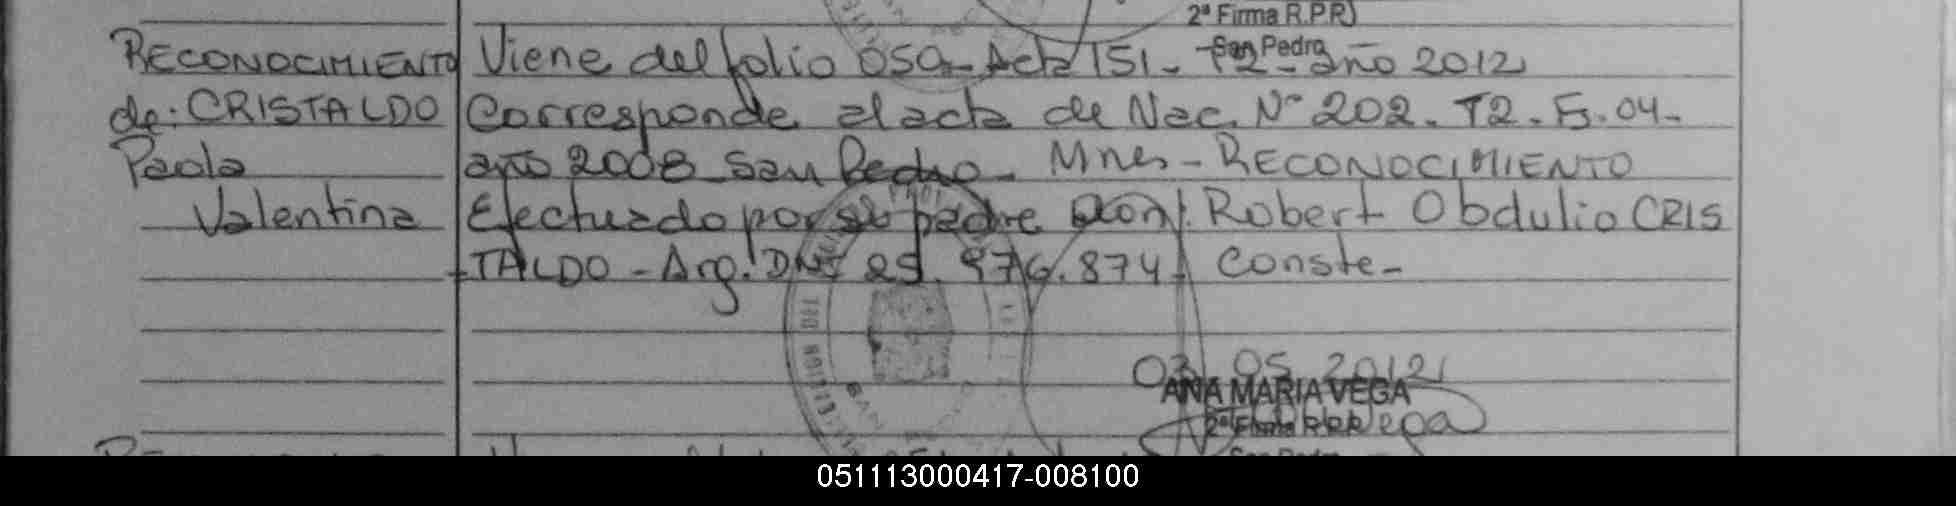 2ª Firma R.P.P.
San Pedro
RECONOCIMIENTO
de: CRISTALDO
Paola
Valentina
Viene del folio 050- Acta 151- T2- año 2012
Corresponde al acta de Nac. Nº 202. T2. F. 04-
año 2008 San Pedro- Mnes- RECONOCIMIENTO
Efectuado por su padre Don: Robert Obdulio CRIS
TALDO - Arg. DNI 25.976.874 Conste-
03 05 2012
ANA MARIA VEGA
2ª Firma R.P.P.
San Pedro
051113000417-008100